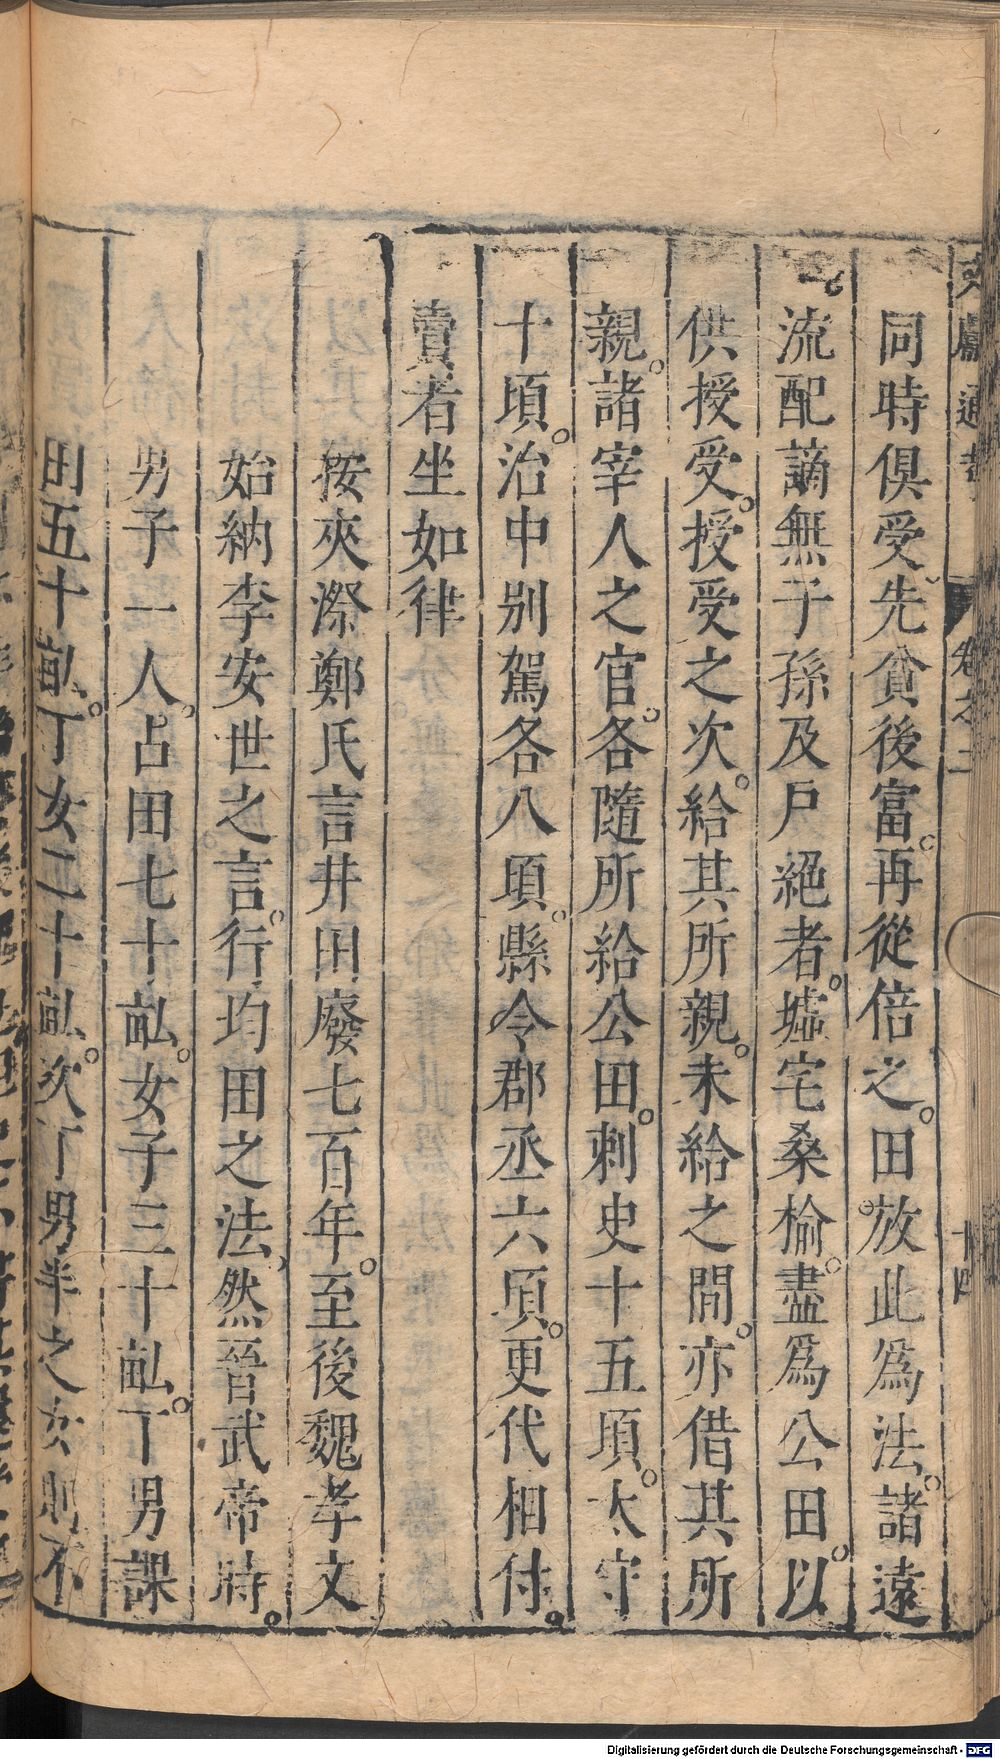 文獻通考 卷之二 十四
同時俱受先貧後富。再從倍之。田放此爲法。諸遠
流配謫無子孫及戶絕者。墟宅桑榆。盡爲公田。以
供授受。授受之次。給其所親。未給之間。亦借其所
親。諸宰人之官。各隨所給公田。刺史十五頃。太守
十頃。治中別駕各八頃。縣令郡丞六頃。更代相付。
賣者坐如律
按夾漈鄭氏言井田廢七百年。至後魏孝文
始納李安世之言。行均田之法、然晉武帝時。
男子一人。占田七十畝。女子三十畝。丁男課
田五十畝。丁女二十畝。次丁男半之女則不
Digitalisierung gefördert durch die Deutsche Forschungsgemeinschaft - DFG